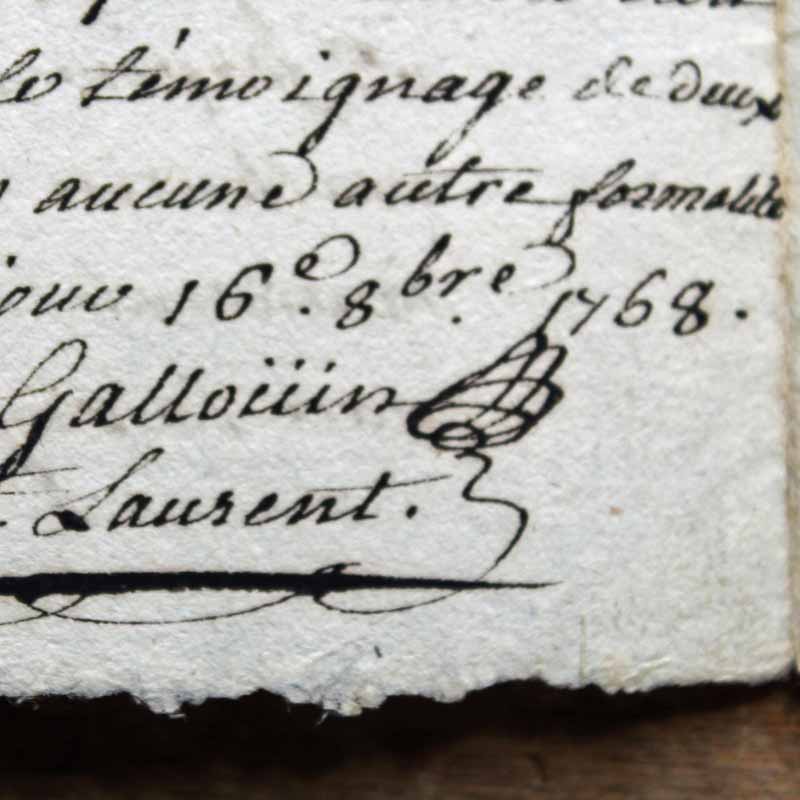 le témoignage de deux
aucune autre formalité
jour 16e. 8bre. 1768.
Galloüin
t. Laurent.